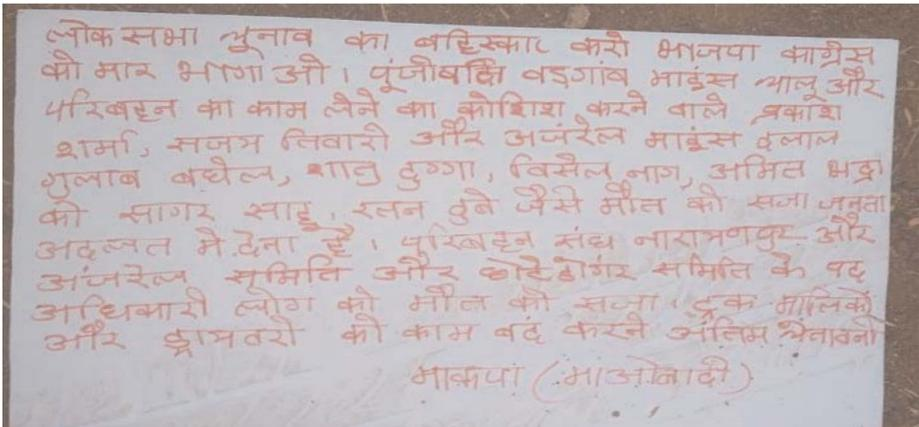 लोक सभा चुनाव का बहिस्कार करो भाजपा काग्रेस
को मार भागाओ। पूंजीपति वडगांव माइंस चालू और
परिबहन का काम लेने का कोशिश करने वाले प्रकाश
शर्मा, सजय तिवारी और अजंरेल माइंस दलाल
गुलाब बघेल, शातु दुग्गा, विसेल नाग, अमित भद्रा
को सागर साहू, रतन दुबे जैसे मौत की सजा जनता
अदलत मे देना है। परिबहन संघ नारायणपुर और
अंजरेल समिति और छोटेडोगंर समिति के पद
अधिकारी लोग को मौत की सजा। ट्रक मालिको
और ड्रायवरो को काम बदं करने अंतिम चेतावनी
माकपा (माओबादी)